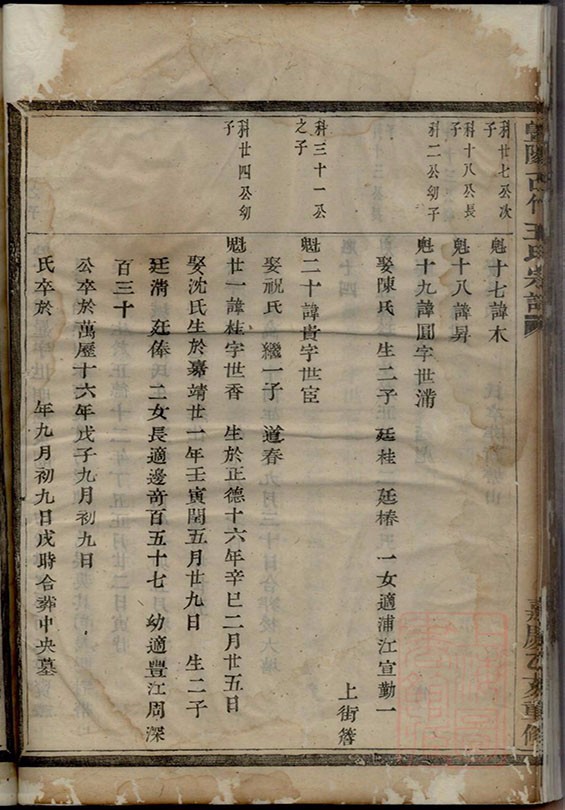 古竹王氏宗譜
嘉慶乙亥重修
科廿七公次子
魁十七諱木
科十八公長子
魁十八諱昇
科二公幼子
魁十九諱圓字世浦
娶陳氏 生二子 廷桂 廷椿 一女適浦江宣勤一
上街
科三十一公之子
魁二十諱貴字世宦
娶祝氏 繼一子 道春
科廿四公幼子
魁廿一諱桂字世香 生於正德十六年辛巳二月廿五日
娶沈氏生於嘉靖廿一年壬寅閏五月廿九日 生二子
廷清 廷俸 二女長適邊奇百五十七 幼適豐江周深
百三十
公卒於萬歷十六年戊子九月初九日
氏卒於 年九月初九日戌時合葬中央墓